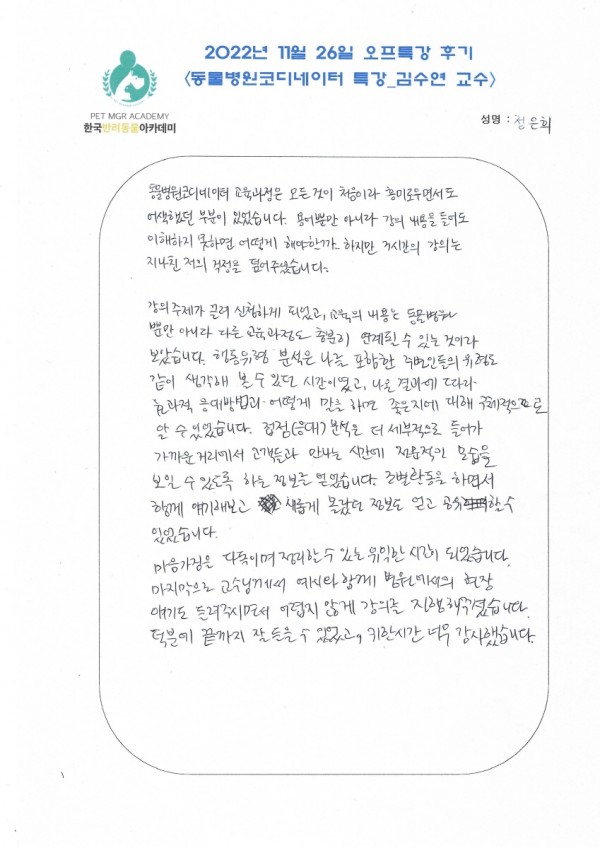 2022년 11월 26일 오프특강 후기
<동물병원코디네이터 특강_김수연 교수>
PET MGR ACADEMY
한국반려동물아카데미
성명 : 정은희
동물병원코디네이터 교육과정은 모든것이 처음이라 흥미로우면서도
어색했던 부분이 있었습니다. 용어뿐만 아니라 강의 내용을 들어도
이해하지 못하면 어떻게 해야한가. 하지만 7시간의 강의는
지나친 저의 걱정을 덜어주었습니다.
강의주제가 끌려 신청하게 되었고, 교육의 내용는 동물병원
뿐만 아니라 다른 교육과정도 충분히 연계될 수 있는 것이라
보았습니다. 행동유형 분석은 나를 포함한 주변인들의 유형도
같이 생각해 볼 수 있던 시간이였고, 나온 결과에 따라
효과적 응대방법과 어떻게 말을 하면 좋은지에 대해 구체적으로
알 수 있었습니다. 접점(응대) 분석은 더 세부적으로 들어가
가까운 거리에서 고객들과 만나는 시간에 전문적인 모습을
보일 수 있도록 하는 정보를 얻었습니다. 조별활동을 하면서
함께 얘기해보고 새롭게 몰랐던 정보도 얻고 공유할 수
있었습니다.
마음가짐은 다독이며 정리할 수 있는 유익한 시간이 되었습니다.
마지막으로 교수님께서 예시와 함께 병원에서의 현장
얘기도 들려주시면서 어렵지 않게 강의를 진행해주셨습니다.
덕분에 끝까지 잘 들을 수 있었고, 귀한시간 너무 감사했습니다.